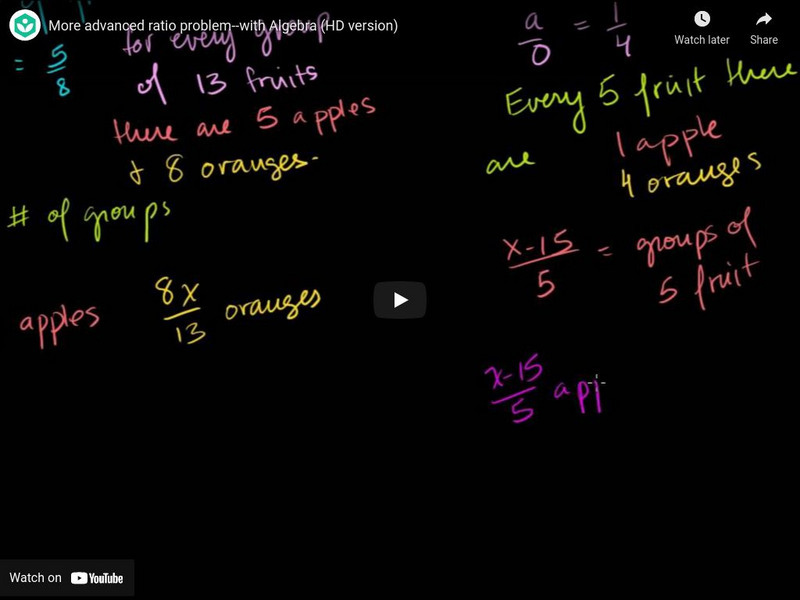 More advanced ratio problem--with Algebra (HD version)
Watch later
Share
= 5/8
for every group
of 13 fruits
there are 5 apples
+ 8 oranges.
# of groups
apples 8x/13 oranges
a/o = 1/4
Every 5 fruit there
are 1 apple
4 oranges
x-15/5 = groups of
5 fruit
x-15/5 app
Watch on YouTube